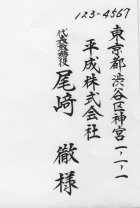 123-4567
東京都渋谷区神宮一,一,一
平成株式会社
代表取締役
尾﨑徹様